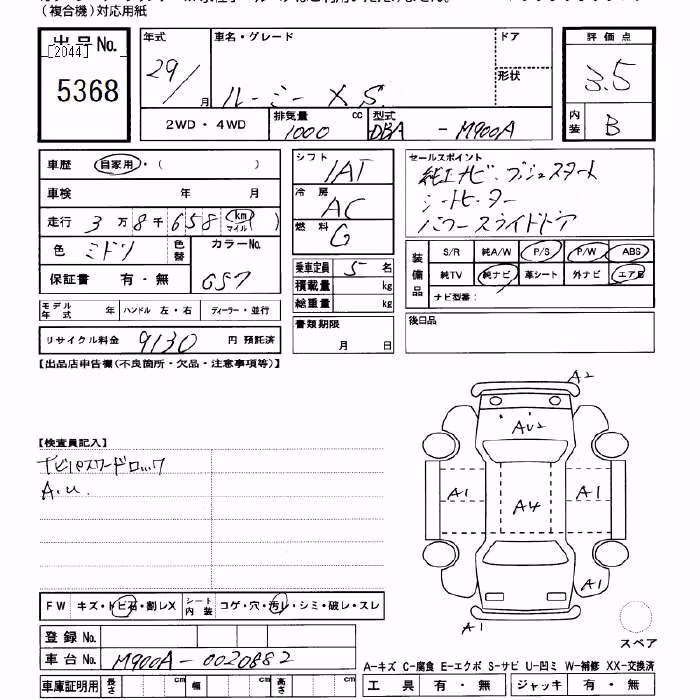 (複合機)対応用紙
出品No.
[2044]
5368
年式
29/ 月
車名・グレード
ルーミー X S
ドア
形状
2WD・4WD
排気量 cc
1000
型式
DBA - M900A
評価点
3.5
内装 B
車歴 自家用・( )
車検 年 月
走行 3万8千658 (km マイル)
色 ミドリ 色替 カラーNo. G57
保証書 有・無
シフト IAT
冷房 AC
燃料 G
乗車定員 5 名
積載量 kg
総重量 kg
セールスポイント
純正ナビ・プッシュスタート
シートヒーター
パワースライドドア
装備品
S/R 純A/W P/S P/W ABS
純TV 純ナビ 革シート 外ナビ エアB
ナビ型番:
モデル年式 年 ハンドル 左・右 ディーラー・並行
書類期限 月 日
後日品
リサイクル料金 9130 円 預託済
【出品店申告欄(不良箇所・欠品・注意事項等)】
【検査員記入】
ナビパスワードロック
A.U.
A2
AU2
A1 A4 A1
A1
A1
スペア
FW キズ・トビ石・割レX シート内装 コゲ・穴・汚レ・シミ・破レ・スレ
登録No.
車台No. M900A-0020882
車庫証明用 長さ cm 幅 cm 高さ cm
A-キズ C-腐食 E-エクボ S-サビ U-凹ミ W-補修 XX-交換済
工具 有・無 ジャッキ 有・無